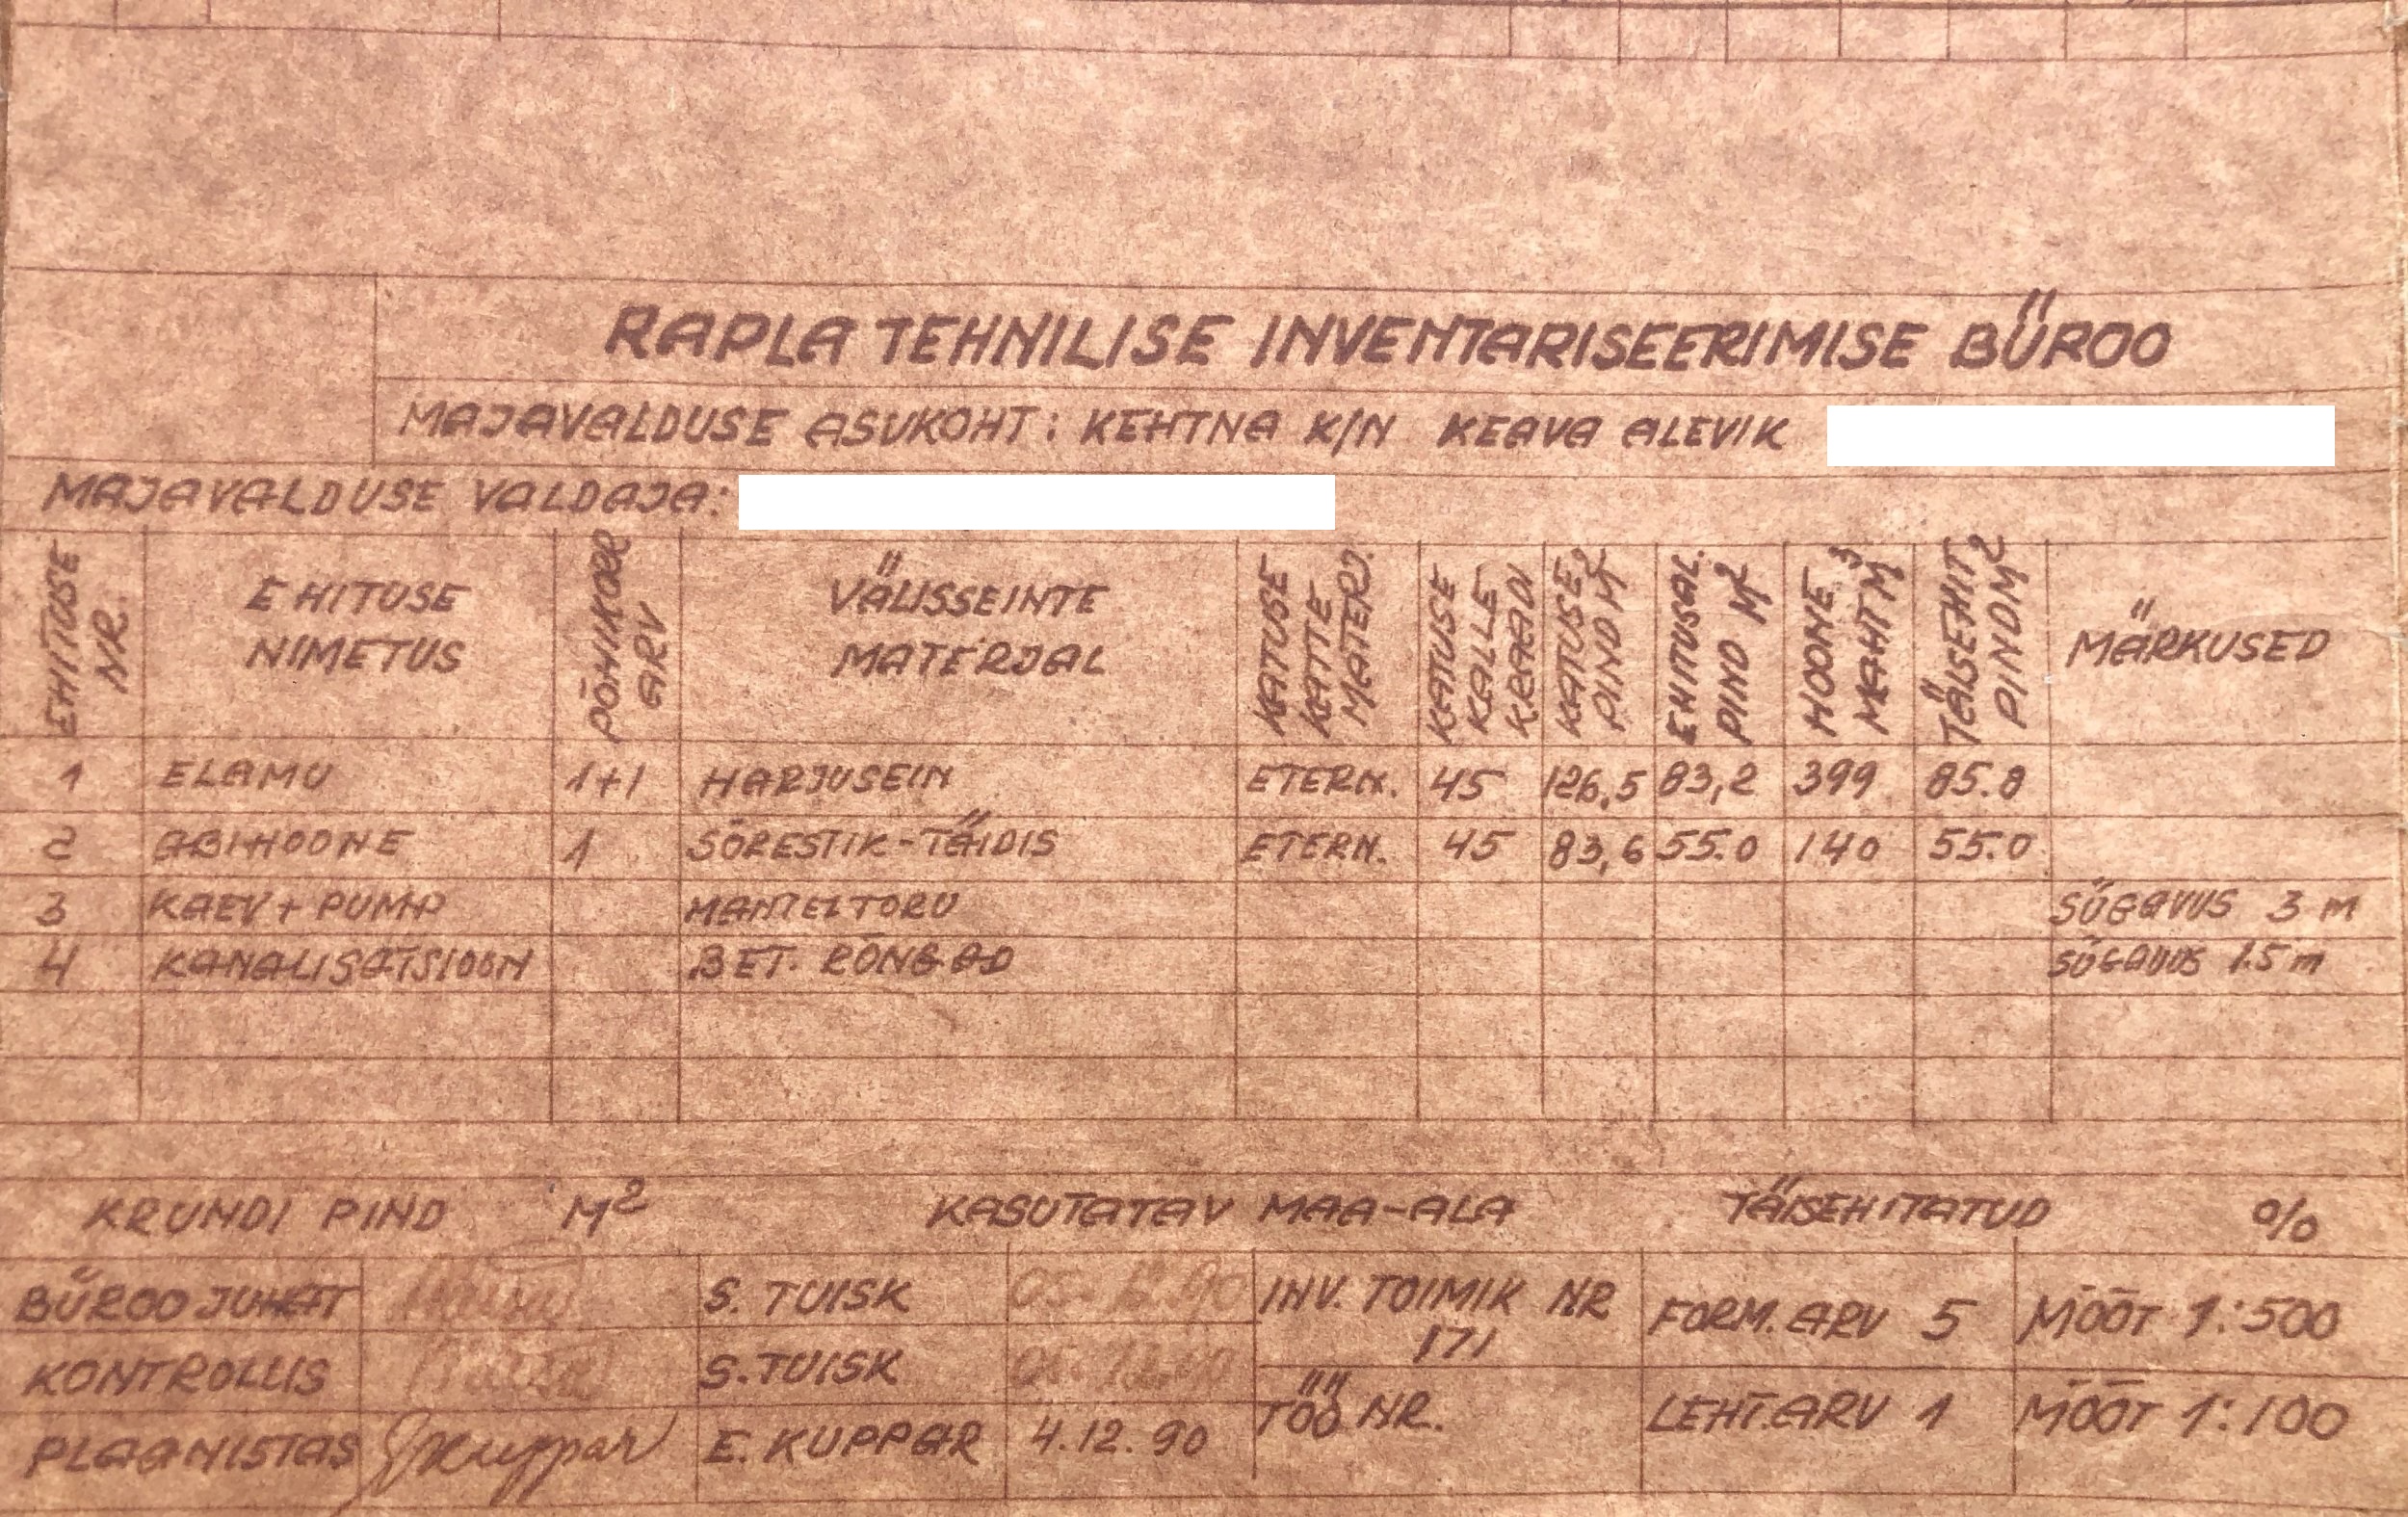 RAPLA TEHNILISE INVENTARISEERIMISE BÜROO
MAJAVALDUSE ASUKOHT: KEHTNA K/N KEAVA ALEVIK
MAJAVALDUSE VALDAJA:
EHITUSE NR.
EHITUSE NIMETUS
PÕHIKORR ARV
VÄLISSEINTE MATERJAL
KATUSE KATTE MATERJ.
KATUSE KALLE KRAADI
KATUSE PIND M²
EHITUSAL. PIND M²
HOONE MAHT M³
TÄISEHIT. PIND M²
MÄRKUSED
1 ELAMU 1+1 HARJUSEIN ETERN. 45 126,5 83,2 399 85.8
2 ABIHOONE 1 SÕRESTIK-TÄIDIS ETERN. 45 83,6 55.0 140 55.0
3 KAEV + PUMP MANTELTORU SÜGAVUS 3 m
4 KANALISATSIOON BET. RÕNGAD SÜGAVUS 1.5 m
KRUNDI PIND M² KASUTATAV MAA-ALA TÄISEHITATUD %
BÜROO JUHAT S. TUISK 05. 12. 90 INV. TOIMIK NR 171 FORM. ARV 5 MÕÕT 1:500
KONTROLLIS S. TUISK
PLAANISTAS EKuppar E. KUPPAR 4.12. 90 TÖÖ NR. LEHT. ARV 1 MÕÕT 1:100